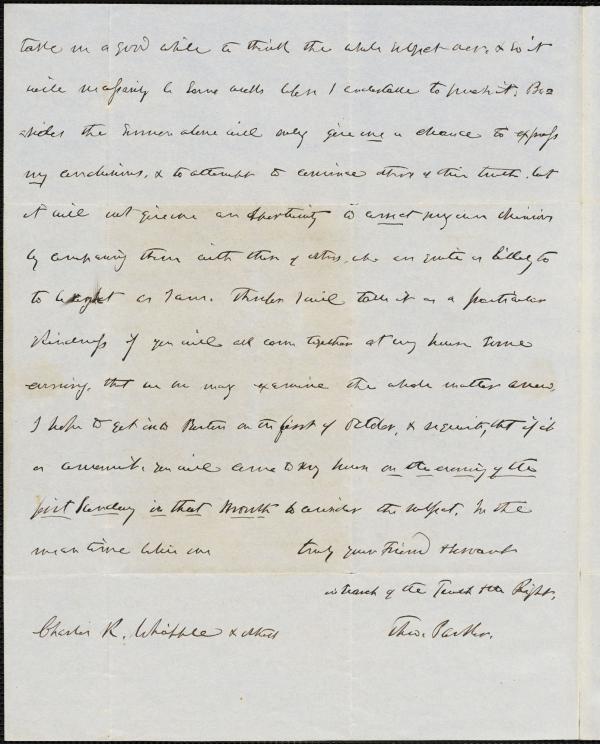 take me a good while to think the whole subject over, & so it
will necessarily be some weeks before I undertake to preach it. Be=
=sides the Sermon alone will only give me a chance to express
my conclusions, & to attempt to convince others of their truth, but
it will not give me an opportunity to correct my own opinions
by comparing them with those of others, who are quite as likely to
to be right as I am. Therefore I will take it as a particular
Kindness if you will all come together at my house some
evening, that we may examine the whole matter anew.
I hope to get into Boston on the first of October, & request, that if it
is convenient you will come to my house on the evening of the
first Sunday in that Month to consider the subject. In the
mean time believe me truly your Friend & Servant
in search of the Truth & the Right,
Charles K. Whipple & others Theo. Parker.